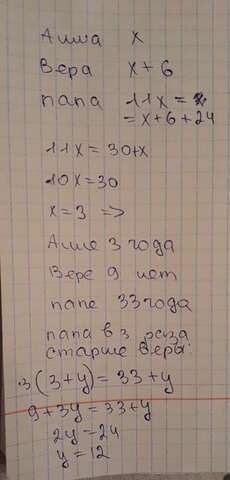 Алиа x
Вера x+6
папа 11x =
= x+6+24
11x = 30+x
10x = 30
x = 3 =>
Алие 3 года
Вере 9 лет
папе 33 года
папа в 3 раза
старше Веры:
·3(3+y) = 33+y
9+3y = 33+y
2y = 24
y = 12